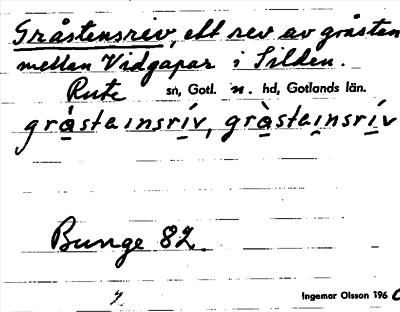 Gråstensriv, ett rev av gråsten
mellan Vidgapar i Silden.
Rute sn, Gotl. n. hd, Gotlands län.
gråstainsrív, gràstainsrív
Bunge 82.
Ingemar Olsson 196